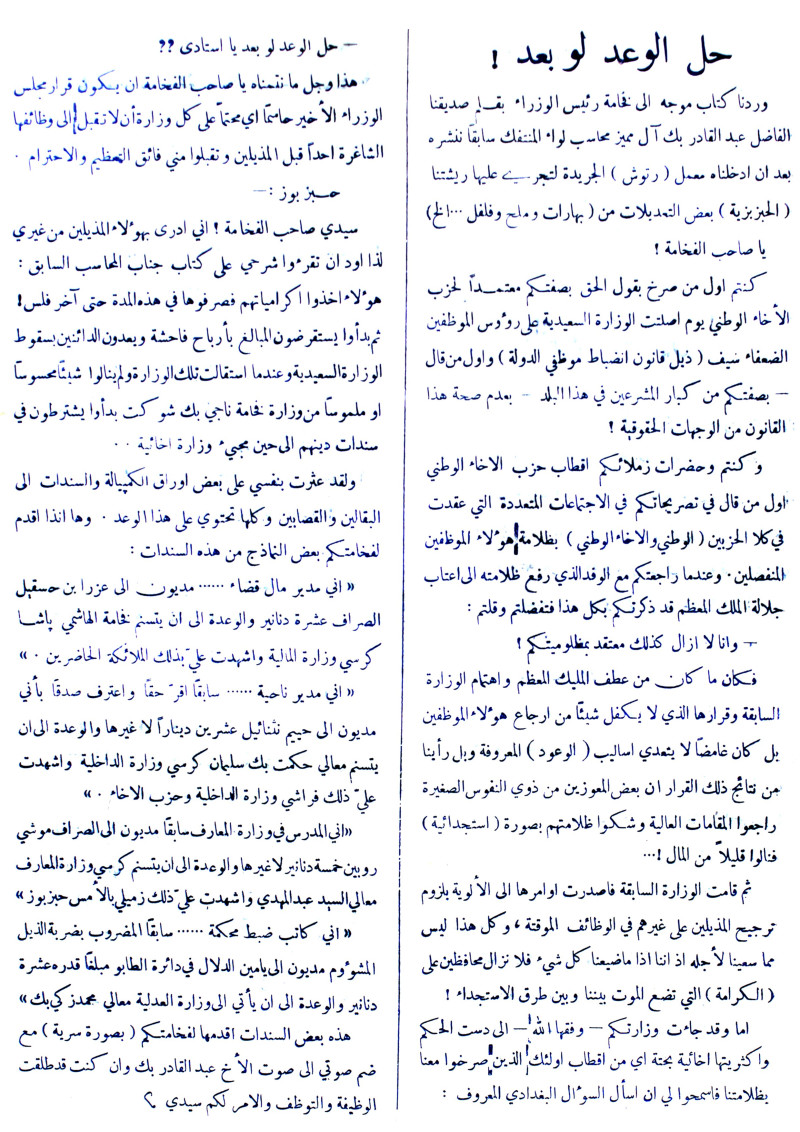 حل الوعد لو بعد !
وردنا كتاب موجه الى فخامة رئيس الوزراء بقلم صديقنا
الفاضل عبد القادر بك آل مميز محاسب لواء المنتفك سابقاً ننشره
بعد ان ادخلناه معمل ( رتوش ) الجريدة لتجري عليها ريشتنا
( الحبزبزية ) بعض التعديلات من ( بهارات وملح وفلفل ... الخ )
يا صاحب الفخامة !
كنتم اول من صرخ بقول الحق بصفتكم معتمداً لحزب
الأخاء الوطني يوم اصلتت الوزارة السعيدية على روءوس الموظفين
الضعفاء سيف ( ذيل قانون انضباط موظفي الدولة ) واول من قال
– بصفتكم من كبار المشرعين في هذا البلد – بعدم صحة هذا
القانون من الوجهات الحقوقية !
وكنتم وحضرات زملائكم اقطاب حزب الاخاء الوطني
اول من قال في تصريحاتكم في الاجتماعات المتعددة التي عقدت
في كلا الحزبين ( الوطني والاخاء الوطني ) بظلامة هوءلاء الموظفين
المنفصلين . وعندما راجعتكم مع الوفد الذي رفع ظلامته الى اعتاب
جلالة الملك المعظم قد ذكرتكم بكل هذا فتفضلتم وقلتم :
– وانا لا ازال كذلك معتقد بمظلوميتكم !
فكان ما كان من عطف المليك المعظم واهتمام الوزارة
السابقة وقرارها الذي لا يكفل شيئاً من ارجاع هوءلاء الموظفين
بل كان غامضاً لا يتعدى اساليب ( الوعود ) المعروفة وبل رأينا
من نتائج ذلك القرار ان بعض المعوزين من ذوي النفوس الصغيرة
راجعوا المقامات العالية وشكوا ظلامتهم بصورة ( استجدائية )
فنالوا قليلاً من المال !...
ثم قامت الوزارة السابقة فاصدرت اوامرها الى الألوية بلزوم
ترجيح المذيلين على غيرهم في الوظائف الموقتة ، وكل هذا ليس
مما سعينا لأجله اذ اننا اذا ماضيعنا كل شيء فلا نزال محافظين على
( الكرامة ) التي تضع الموت بيننا وبين طرق الاستجداء !
اما وقد جاءت وزارتكم – وفقها الله – الى دست الحكم
واكثريتها اخائية بحتة اي من اقطاب اولئك الذين صرخوا معنا
بظلامتنا فاسمحوا لي ان اسأل السوءال البغدادي المعروف :
– حل الوعد لو بعد يا استادي ??
هذا وجل ما نتمناه يا صاحب الفخامة ان يكون قرار مجلس
الوزراء الأخير حاسماً اي محتماً على كل وزارة أن لا تقبل الى وظائفها
الشاغرة احداً قبل المذيلين وتقبلوا مني فائق التعظيم والاحترام .
حبز بوز :–
سيدي صاحب الفخامة ! اني ادرى بهوءلاء المذيلين من غيري
لذا اود ان تقرءوا شرحي على كتاب جناب المحاسب السابق :
هوءلاء اخذوا اكرامياتهم فصرفوها في هذه المدة حتى آخر فلس !
ثم بدأوا يستقرضون المبالغ بأرباح فاحشة ويعدون الدائنين بسقوط
الوزارة السعيدية وعندما استقالت تلك الوزارة ولم ينالوا شيئاً محسوساً
او ملموساً من وزارة فخامة ناجي بك شوكت بدأوا يشترطون في
سندات دينهم الى حين مجيء وزارة اخائية . .
ولقد عثرت بنفسي على بعض اوراق الكمبيالة والسندات الى
البقالين والقصابين وكلها تحتوي على هذا الوعد . وها انذا اقدم
لفخامتكم بعض النماذج من هذه السندات :
« اني مدير مال قضاء ...... مديون الى عزرا بن حسقيل
الصراف عشرة دنانير والوعدة الى ان يتسنم فخامة الهاشمي پاشا
كرسي وزارة المالية واشهدت عليّ بذلك الملائكة الحاضرين . »
« اني مدير ناحية ...... سابقاً اقرّ حقاً واعترف صدقاً بأني
مديون الى حييم نثنائيل عشرين ديناراً لا غيرها والوعدة الى ان
يتسنم معالي حكمت بك سليمان كرسي وزارة الداخلية واشهدت
عليّ ذلك فراشي وزارة الداخلية وحزب الاخاء . »
« اني المدرس في وزارة المعارف سابقاً مديون الى الصراف موشي
روبين خمسة دنانير لا غيرها والوعدة الى ان يتسنم كرسي وزارة المعارف
معالي السيد عبد المهدي واشهدت عليّ ذلك زميلي بالأمس حبزبوز »
« اني كاتب ضبط محكمة ...... سابقاً المضروب بضربة الذيل
المشوءوم مديون الى يامين الدلال في دائرة الطابو مبلغاً قدره عشرة
دنانير والوعدة الى ان يأتي الى وزارة العدلية معالي محمد زكي بك »
هذه بعض السندات اقدمها لفخامتكم ( بصورة سرية ) مع
ضم صوتي الى صوت الأخ عبد القادر بك وان كنت قد طلقت
الوظيفة والتوظف والامر لكم سيدي ؟